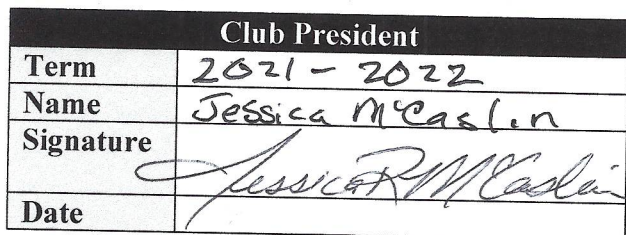 Club President
Term 2021 - 2022
Name Jessica McCaslin
Signature Jessica R McCaslin
Date